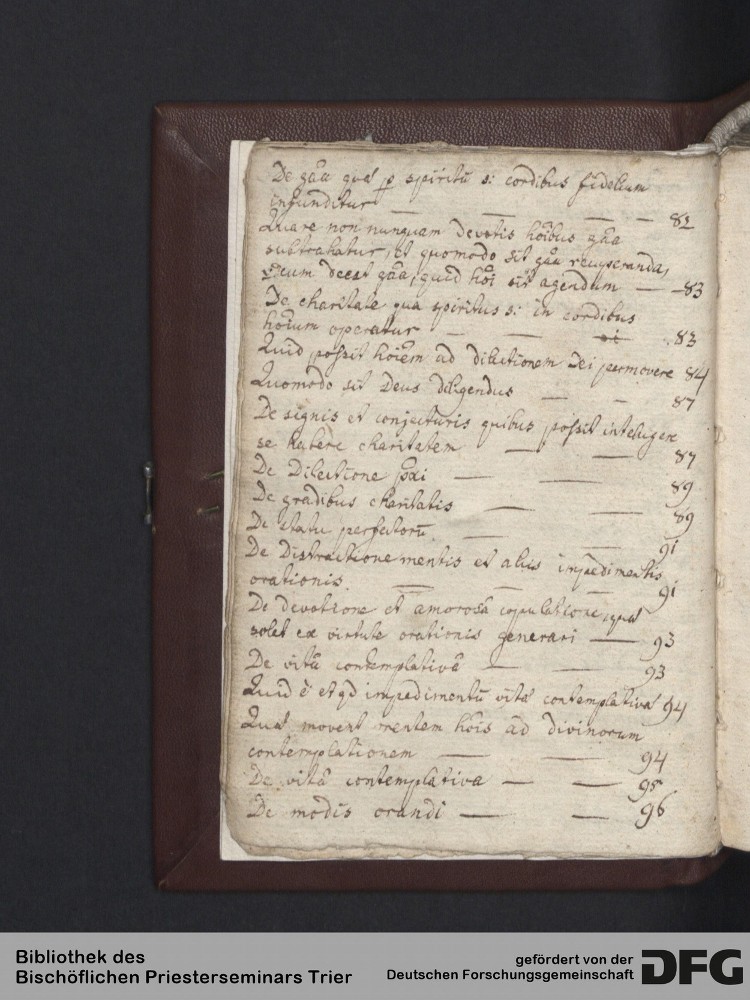 De grâa quâ p spiritū s: cordibus fidelium
infunditur — — — — 82
Quare non nunquam devotis hôibus grâa
subtrahatur, et quomodo sit grâa recuperanda,
cum deest grâa, quid hôi sit agendum — — 83
De charitate qua spiritus s: in cordibus
hôium operatur — — 83
Quid possit hôiem ad dilectionem Dei permovere 84
Quomodo sit Deus diligendus — — 87
De signis et conjecturis quibus possit intelligere
se habere charitatem — — 87
De Dilectione pxi — — 89
De gradibus charitatis — — 89
De statu perfectorū — — 91
De Distractione mentis et aliis impedimentis
orationis — — — 91
De devotione et amorosâ copulatione, quæ
solet ex virtute orationis generari — 93
De vitâ contemplativâ — — 93
Quid ê et qd impedimentū vitæ contemplativæ 94
Quæ movent mentem hôis ad divinorum
contemplationem — — 94
De vitâ contemplativa — — 95
De modis orandi — — 96
Bibliothek des
Bischöflichen Priesterseminars Trier
gefördert von der
Deutschen Forschungsgemeinschaft
DFG